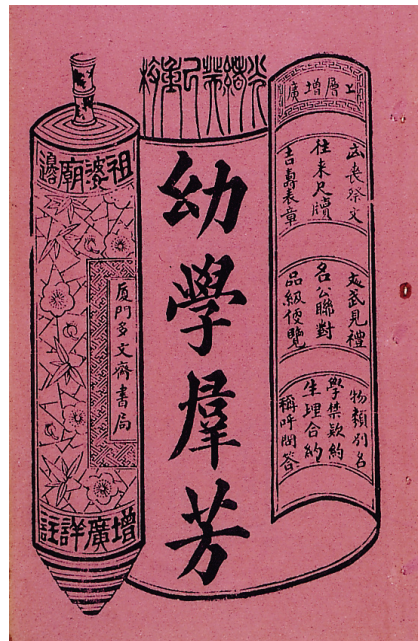 上層增廣
凶喪祭文
往來尺牘
吉壽表章
文武見禮
名公聯對
品級便覽
物類別名
學禁款約
生理合約
稱呼問答
光緒
重梓
幼學羣芳
祖婆廟邊
厦門多文齋書局
增廣詳註